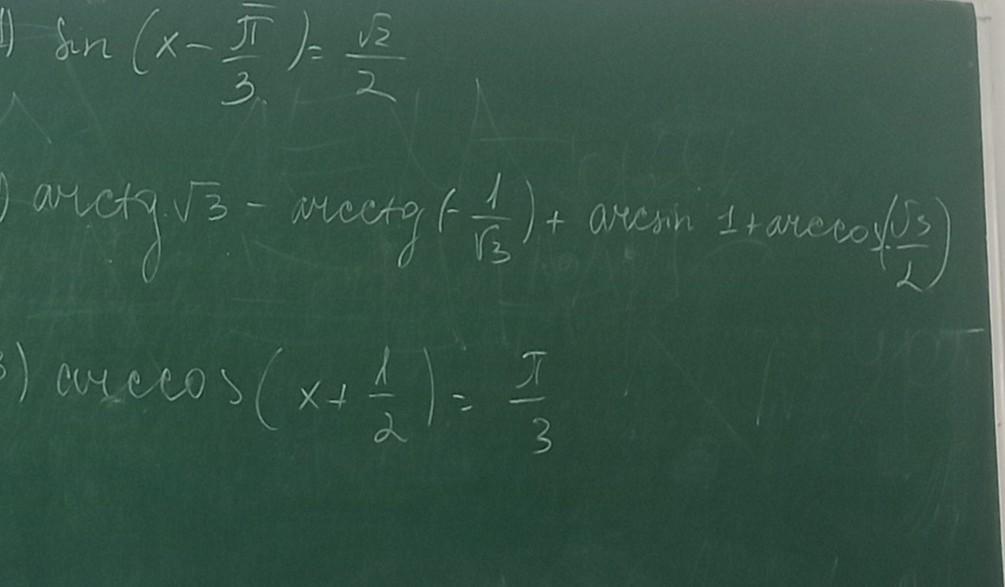 1) sin (x - π/3) = √2/2
) arctg √3 - arcctg (-1/√3) + arcsin 1 + arccos (√3/2)
3) arccos (x + 1/2) = π/3